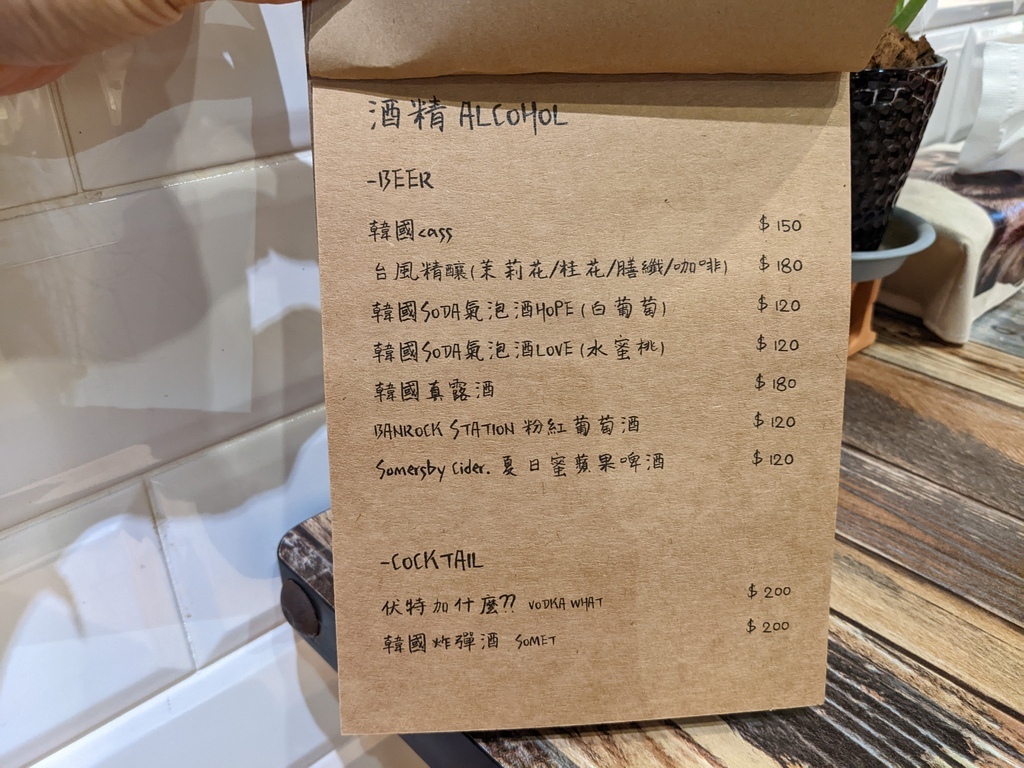 酒精 ALCOHOL
-BEER
韓國cass $150
台風精釀(茉莉花/桂花/膳纖/咖啡) $180
韓國SODA氣泡酒HOPE(白葡萄) $120
韓國SODA氣泡酒LOVE(水蜜桃) $120
韓國真露酒 $180
BANROCK STATION 粉紅葡萄酒 $120
Somersby Cider. 夏日蜜蘋果啤酒 $120
-COCKTAIL
伏特加什麼?? VODKA WHAT $200
韓國炸彈酒 SOMET $200